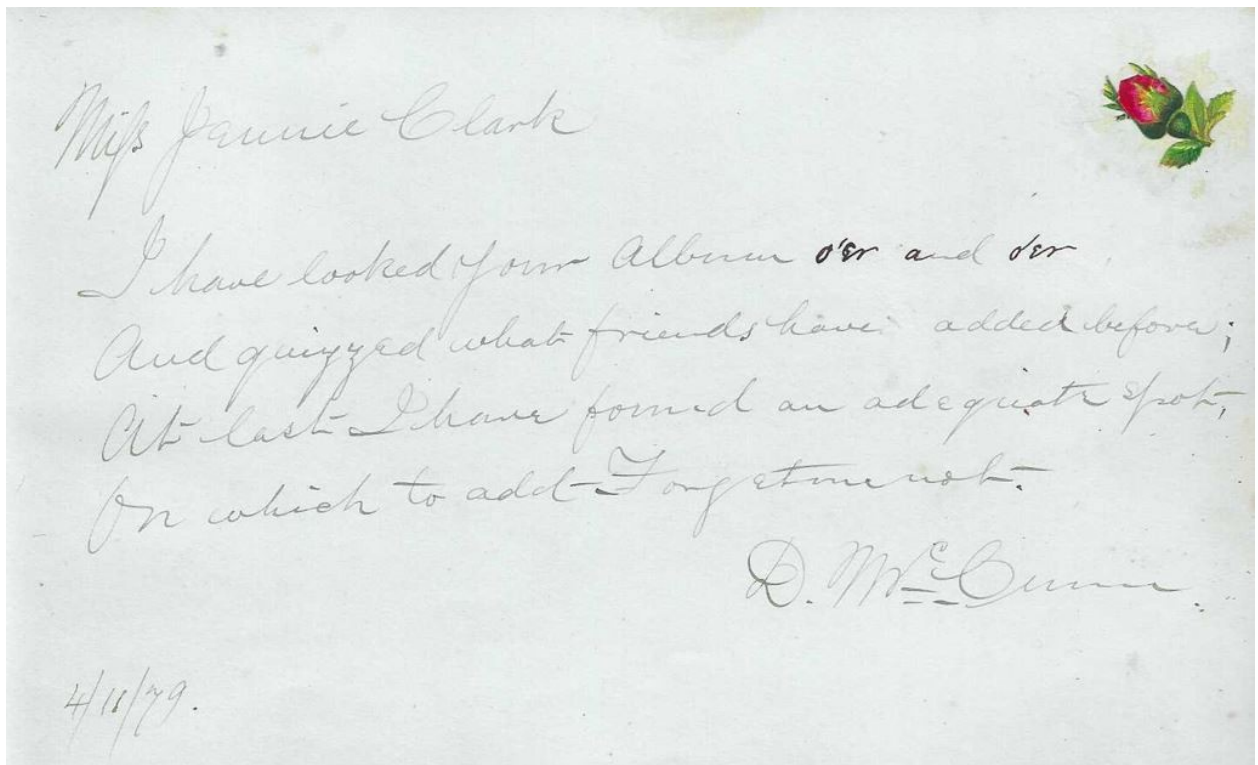 Miss Jennie Clark
I have looked your Album o'er and o'er
And quizzed what friends have added before;
At last I have found an adequate spot,
On which to add Forgetmenot.
D. McCunn.
4/11/79.